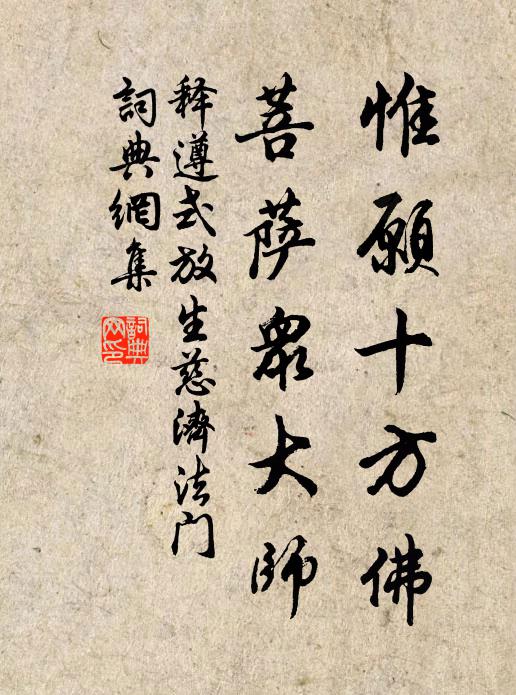 惟願十方佛
菩薩眾大師
释遵式放生慈濟法门
詞典網集
詞典網印